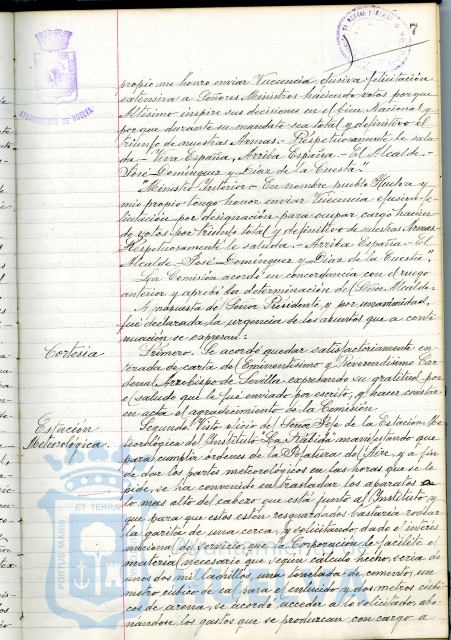 7
AYUNTAMIENTO DE HUELVA
propio me honro enviar Vuecencia, efusiva felicitación
extensiva a Señores Ministros haciendo votos porque
Altísimo inspire sus decisiones en el bien Nacional y
porque durante su mandato sea total y definitivo el
triunfo de nuestras Armas.- Respetuosamente le salu-
da.- Viva España, Arriba España.- El Alcalde.-
José Domínguez y Díaz de la Cuesta".
"Ministro Interior.- En nombre pueblo Huelva y
mío propio tengo honor enviar Vuecencia efusiva fe-
licitación por designación para ocupar cargo hacien-
do votos por triunfo total y definitivo de nuestras Armas-
Respetuosamente le saluda.- Arriba España.- El
Alcalde.- José Domínguez y Díaz de la Cuesta"
La Comisión acordó en concordancia con el ruego
anterior y aprobó la determinación del Señor Alcalde.-
A propuesta del Señor Presidente, y por unanimidad,
fué declarada la urgencia de los asuntos que a conti-
nuación se expresan:
Cortesía
Primero. Se acordó quedar satisfactoriamente en-
terada de carta del Eminentísimo y Reverendísimo Car-
denal Arzobispo de Sevilla expresando su gratitud por
el saludo que le fué enviado por escrito, y hacer constar
en acta el agradecimiento de la Comisión.
Estación
Meteorológica.
Segundo. Visto oficio del Señor Jefe de la Estación Me-
teorológica del Instituto "La Rábida" manifestando que
para cumplir órdenes de la Jefatura del Aire, y a fin
de dar los partes meteorológicos en las horas que se le
pide, se ha convenido en trasladar los aparatos a
lo mas alto del cabezo que está junto al Instituto, y
que para que estos estén resguardados bastaría rodear
la garita de una cerca, y solicitando, dado el interés
nacional del servicio, que la Corporación le facilite el
material necesario que según cálculo hecho, sería de
unos dos mil ladrillos, una tonelada de cemento, un
metro cúbico de cal para el enlucido y dos metros cúbi-
cos de arena, se acordó acceder a lo solicitado, abo-
nándose los gastos que se produzcan con cargo a
ET TERRA
PORTUS MARIS